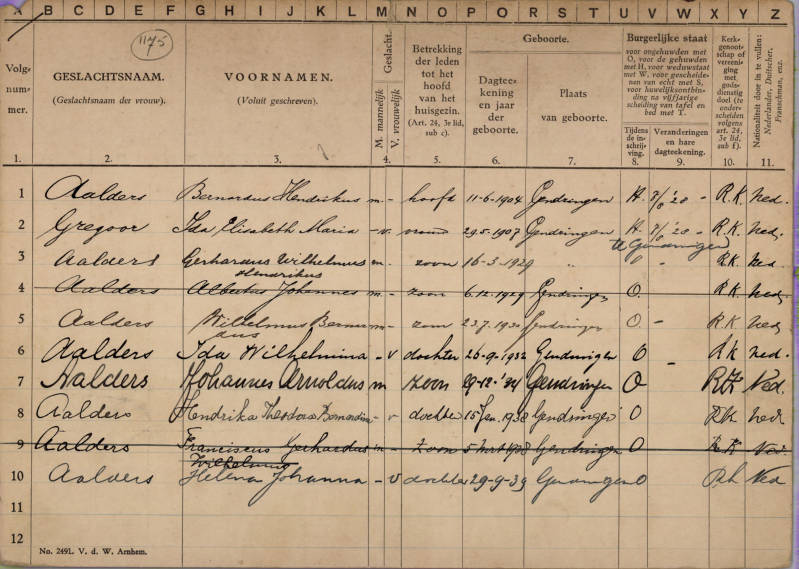 A B C D E F G H I J K L M N O P Q R S T U V W X Y Z
1175
Volg-
num-
mer.
GESLACHTSNAAM.
(Geslachtsnaam der vrouw).
VOORNAMEN.
(Voluit geschreven).
Geslacht.
M. mannelijk
V. vrouwelijk
Betrekking
der leden
tot het
hoofd
van het
huisgezin.
(Art. 24, 3e lid,
sub c).
Geboorte.
Dagtee-
kening
en jaar
der
geboorte.
Plaats
van geboorte.
Burgerlijke staat
voor ongehuwden met
O, voor de gehuwden
met H, voor weduwstaat
met W, voor gescheide-
nen van echt met S,
voor huwelijksontbin-
ding na vijfjarige
scheiding van tafel en
bed met T.
Tijdens
de in-
schrij-
ving.
Veranderingen
en hare
dagteekening.
Kerk-
genoot-
schap of
vereeni-
ging
met
gods-
dienstig
doel (te
onder-
scheiden
volgens
art. 24,
3e lid,
sub f).
Nationaliteit door in te vullen:
Nederlander, Duitscher,
Franschman, enz.
1. 2. 3. 4. 5. 6. 7. 8. 9. 10. 11.
1 Aalders Bernardus Hendrikus m - hoofd 11-6-1904 Gendringen H. R.K. Ned.
2 Gregoor Ida Elisabeth Maria - v. vrouw 29.5-1907 Gendringen H. R.K. Ned.
te Gendringen
3 Aalders Gerhardus Wilhelmus m - zoon 16-3-1929 " O R.K. Ned.
Hendrikus
4 Aalders Albertus Johannes m. - zoon 6.12.1929 Gendringen O. R.K. Ned.
5 Aalders Wilhelmus Bernar m - zoon 23.7.1930 Gendringen O. - R.K. Ned
dus
6 Aalders Ida Wilhelmina - v dochter 26-9-1932 Gendringen O - R.k. ned.
7 Aalders Johannes Arnoldus m zoon 19-12-'34 Gendringen O R.K. Ned.
8 Aalders Hendrika Theodora Bernardina - v dochter 15 Jan. 1938 Gendringen O R.k. Ned
9 Aalders Franciscus Gerhardus m - zoon 5 Gendringen O R.K. Ned.
Wilhelmus
10 Aalders Helena Johanna - v dochter 29-9-39 Gendringen O R.k. Ned
11
12
No. 2491. V. d. W. Arnhem.